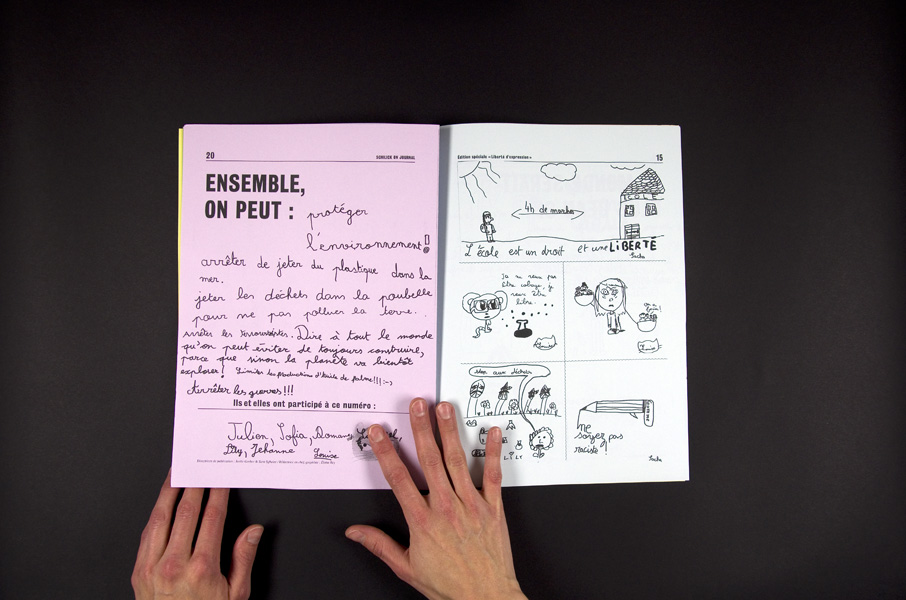 20
ENSEMBLE,
ON PEUT : protéger
l'environnement!
arrêter de jeter du plastique dans la
mer.
jeter les déchets dans la poubelle
pour ne pas polluer la terre..
Arrêter les Dire à tout le monde
qu'on peut éviter de toujours construire,
parce que sinon la planète va bientôt
explorer! Limiter la production d'huile de palme!!! :-)
Arrêter les guerres!!!
Ils et elles ont participé à ce numéro :
Julien, Sofia, Romane,
Lily, Jehanne Louise
Edition spéciale «Liberté d'expression» 15
ECOLE
4h de marche
L'école est un droit et une LIBERTÉ
Sacha
Je ne veux pas
être cobaye, je
veux être
libre.
Louise
Louise
Non aux déchets
LILY
ne
soyez pas
raciste!
Sacha